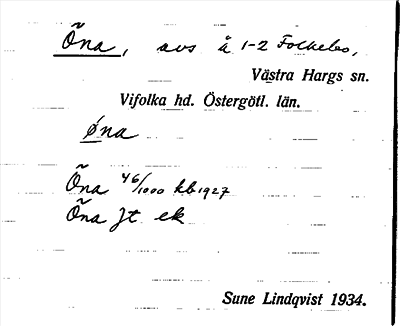 Öna, avs å 1-2 Folkebo,
Västra Hargs sn.
Vifolka hd. Östergötl. län.
øna
Öna 46/1000 kb 1927
Öna Jt ek
Sune Lindqvist 1934.